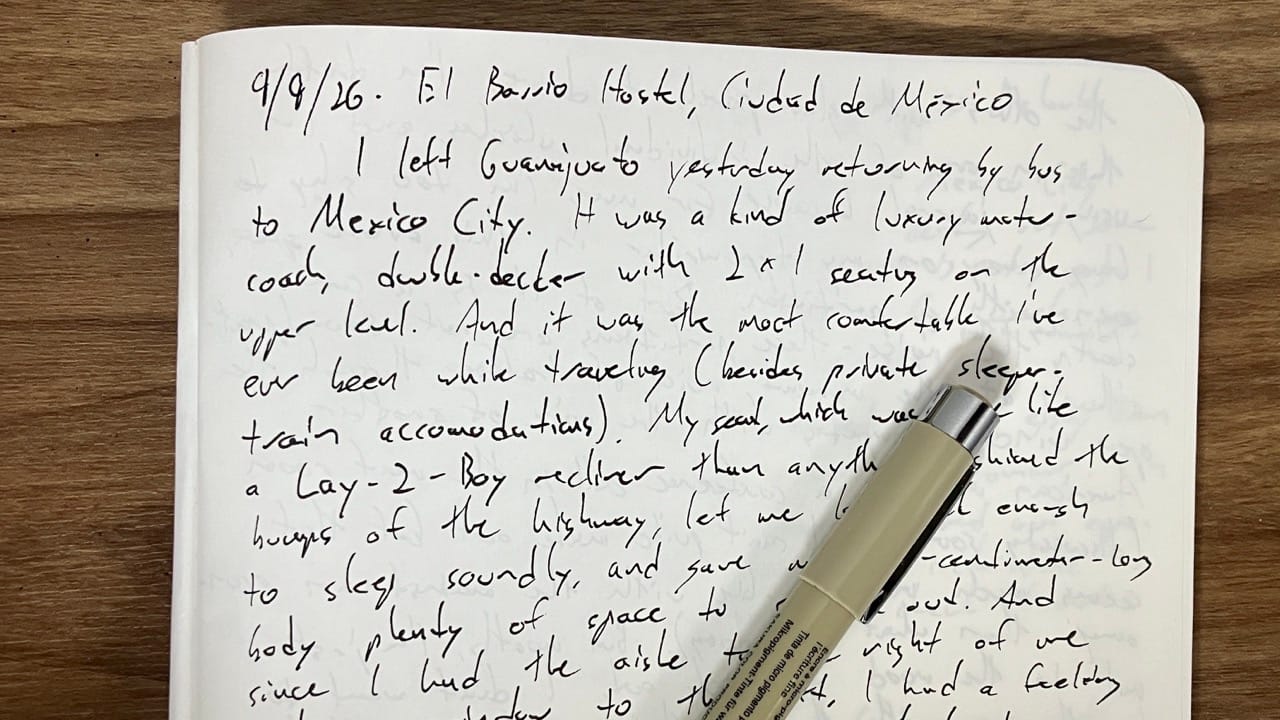 9/8/26. El Barrio Hostel, Ciudad de México
I left Guanijuato yesterday returning by bus
to Mexico City. It was a kind of luxury motor-
coach, double-decker with 2x1 seating on the
upper level. And it was the most comfortable I've
ever been while traveling (besides private sleeper-
train accomodations). My seat, which was like
a Lay-Z-Boy recliner than the
bumps of the highway, let me enough
to sleep soundly, and gave -centimeter-long
body plenty of space to out. And
since I had the aisle right of me
window to I had a feeling
Encre à micro-pi
l'écriture fine
Tinta de micro pigmento
Mikropigment-Tinte für